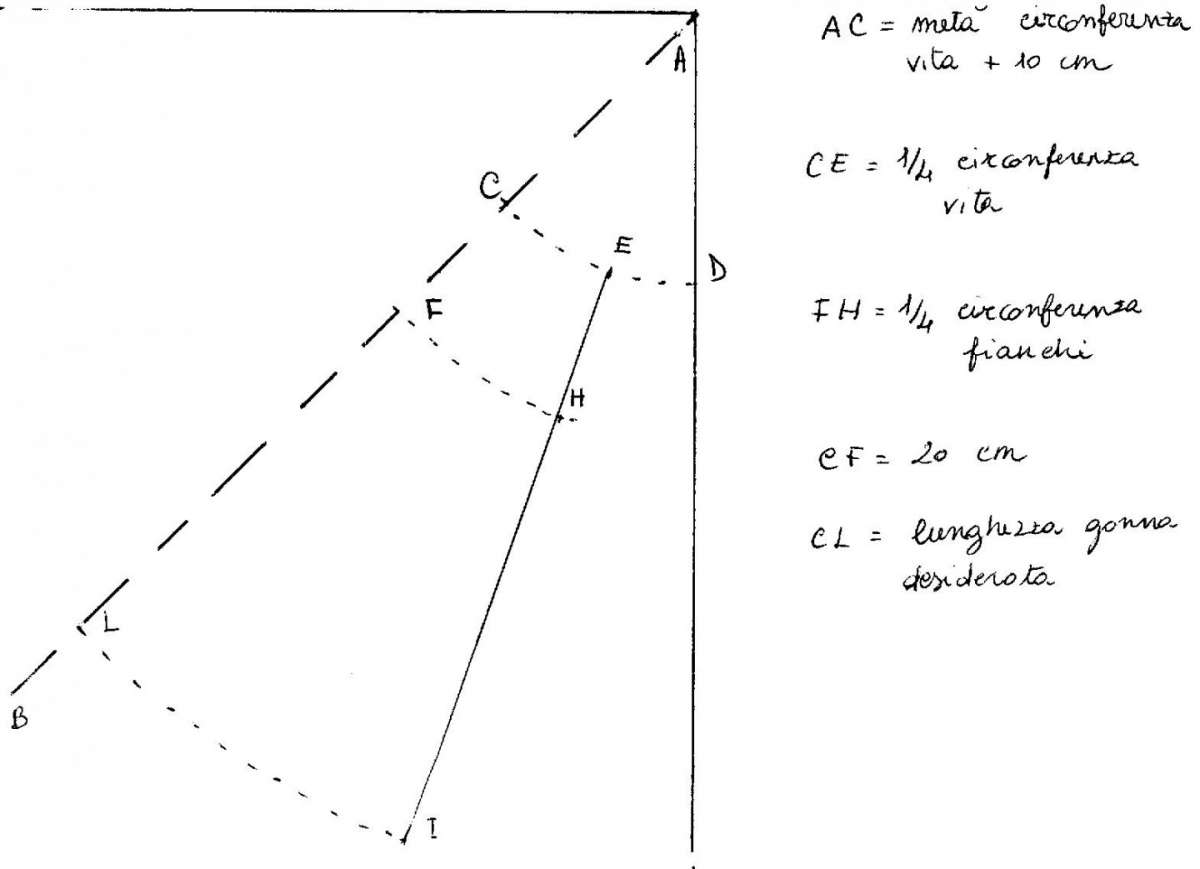 A
C
E
D
F
H
L
B
I
AC = metà circonferenza
vita + 10 cm
CE = 1/4 circonferenza
vita
FH = 1/4 circonferenza
fianchi
CF = 20 cm
CL = lunghezza gonna
desiderata